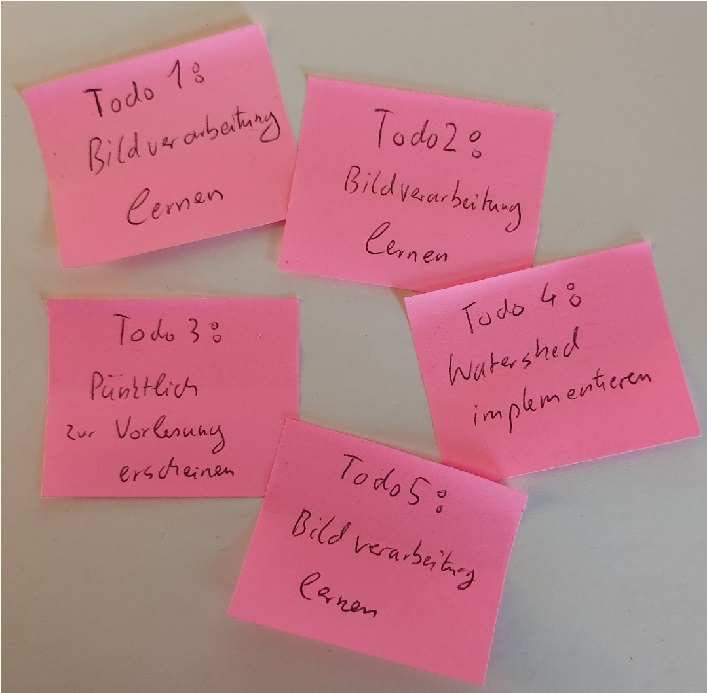 Todo 1:
Bildverarbeitung
lernen
Todo2:
Bildverarbeitung
lernen
Todo 3:
Pünktlich
zur Vorlesung
erscheinen
Todo 4:
Watershed
implementieren
Todo5:
Bildverarbeitung
lernen